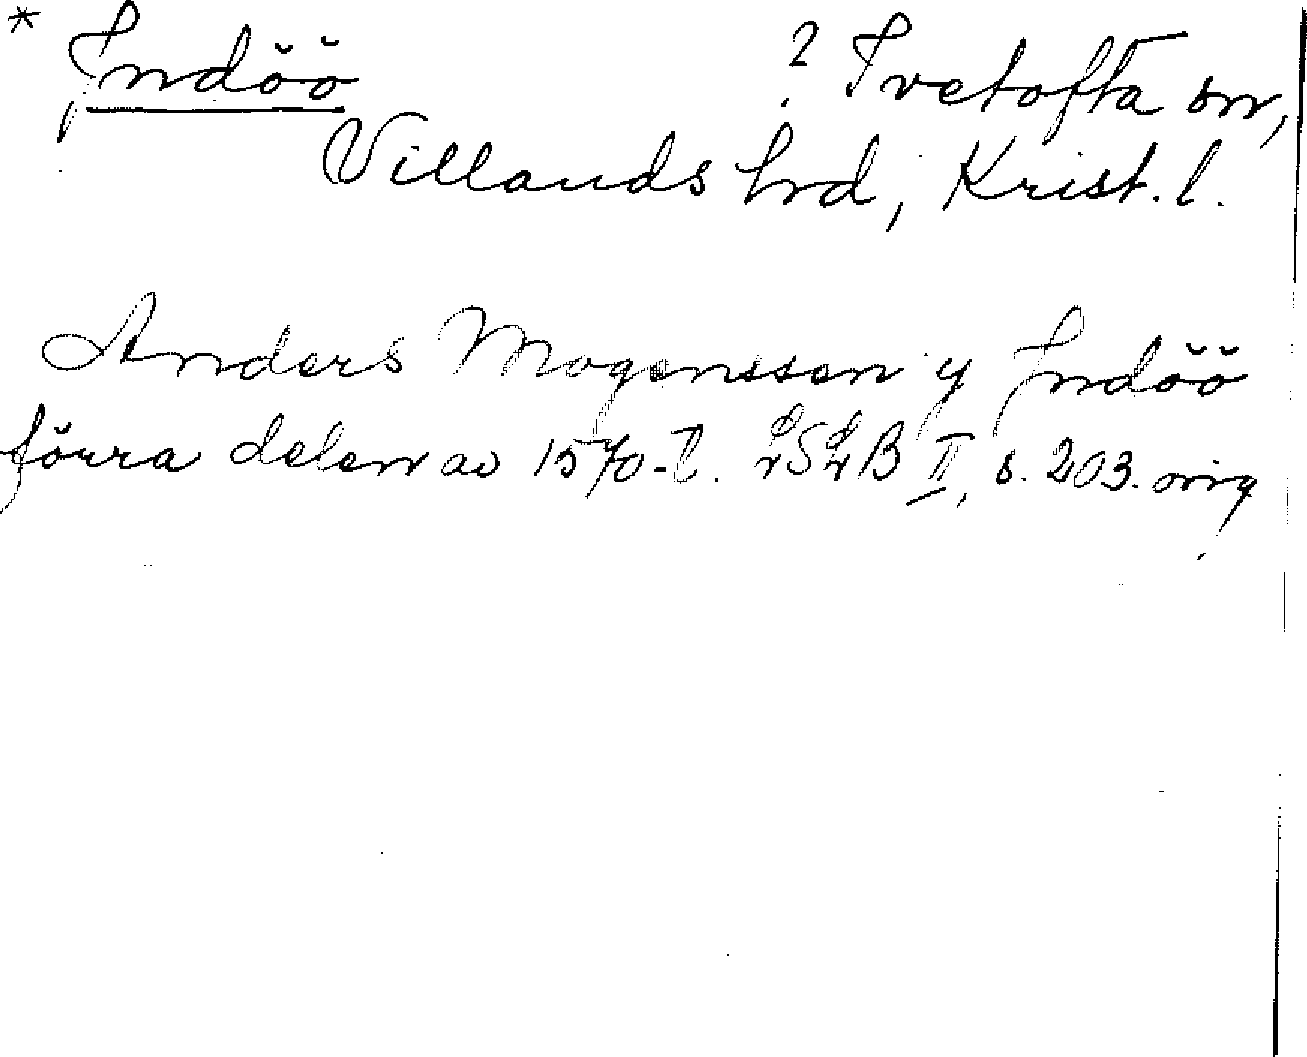 * Indöö ? Ivetofta sn,
Villands hd, Krist. l.
Anders Mogenssen y Indöö
förra delen av 1570-t. LSLB II, s. 203. orig